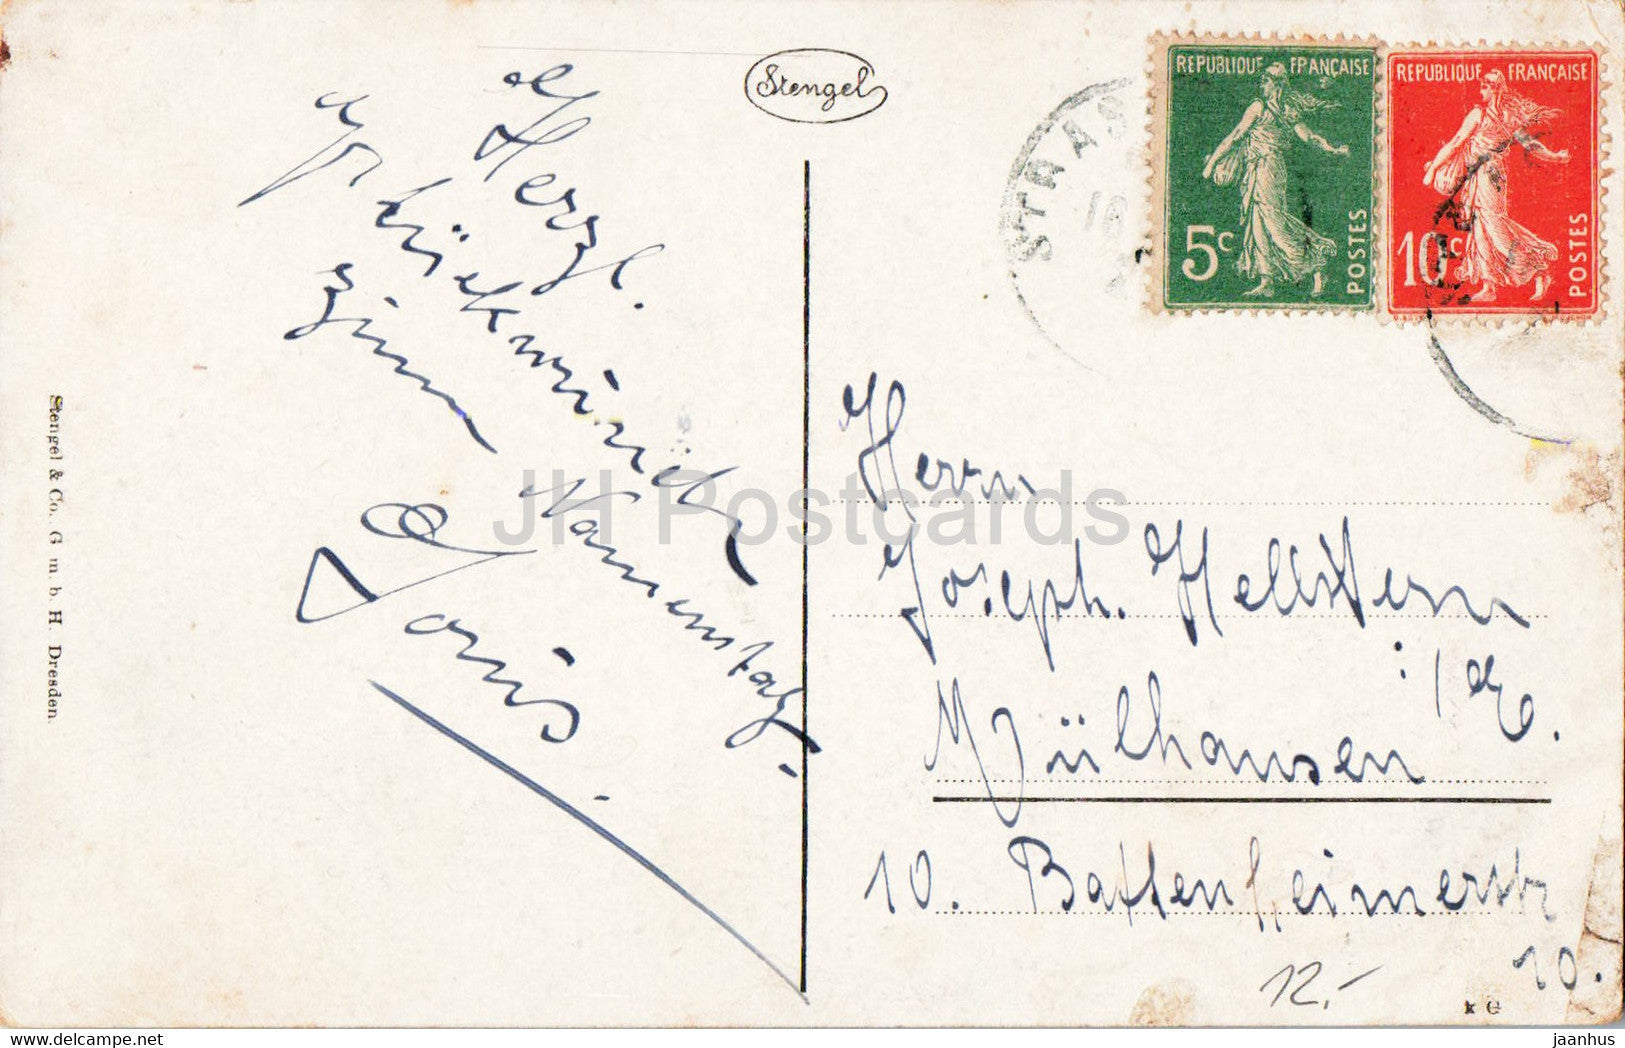 Stengel
REPUBLIQUE FRANÇAISE
5c
POSTES
REPUBLIQUE FRANÇAISE
10c
POSTES
STRAS
Herzl.
Glückwünsche
zum Namenstag.
Louis.
Herrn
Joseph. Hellstern
Mülhausen i/E.
10. Battenheimerstr
10.
12.-
Stengel & Co. G. m. b. H. Dresden.
JH Postcards
delcampe.net
jaanhus